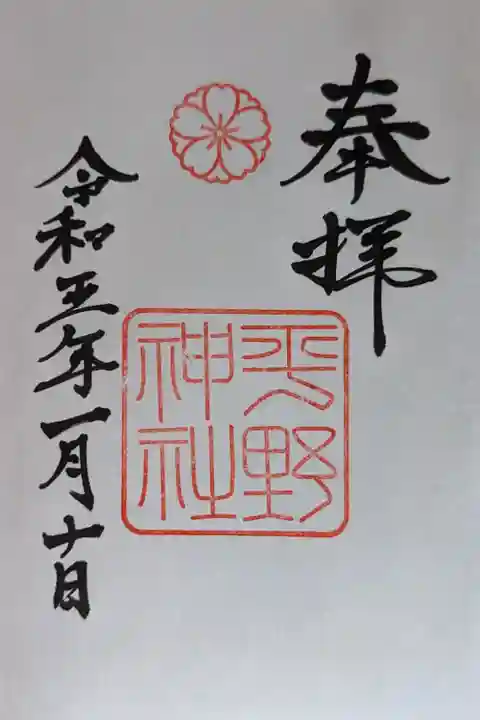 奉拝
平野
神社
令和五年一月十日